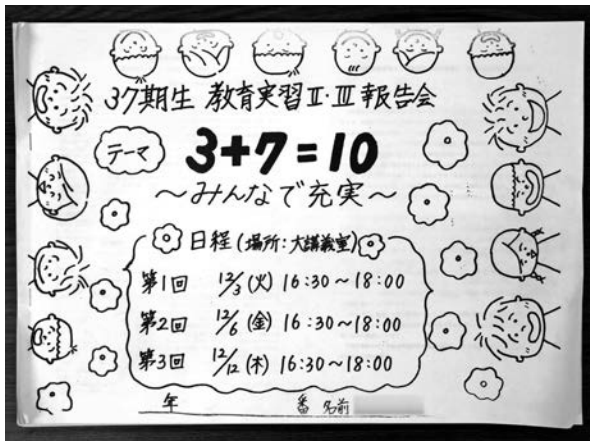 37期生 教育実習Ⅱ・Ⅲ 報告会
テーマ
3+7=10
～みんなで充実～
日程(場所:大講義室)
第1回 12/3(火) 16:30～18:00
第2回 12/6(金) 16:30～18:00
第3回 12/12(木) 16:30～18:00
年 番 名前